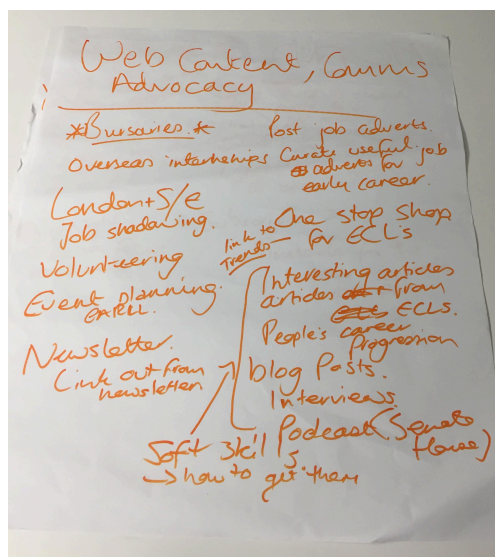 Web Content, Comms
Advocacy
*Bursaries.*
Overseas internships
London + S/E
Job shadowing.
Volunteering
Event planning.
Newsletter.
Link out from
newsletter
Post job adverts.
Curate useful job
adverts for
early career.
One stop shop
for ECL's
link to
Trends
Interesting articles
articles from
ECLS.
People's career
Progression
blog Posts.
Interviews
Podcast (Senate
House)
Soft skills
→ how to get them